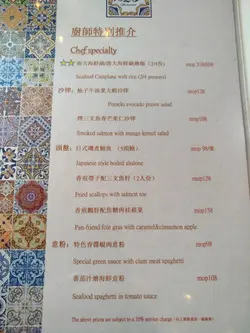 廚師特別推介
Chef specialty
mop
Seafood Cataplana welt rice (2/4 persons)
沙律: 柚子牛油果大蝦沙律 mop128
Pomelo avocado prawn salad
煙三文魚杏芒果仁沙律 mop108
Smoked salmon with mango kernel salad
頭盤: 日式磯煮鮑魚 mop 96/隻
Japanese style boiled abalone
香煎帶子配三文魚籽 (2人份) mop138
Fried scallops with salmon roe
香煎鵝肝配焦糖肉桂蘋果 mop158
Pan-fried foie gras with caramel&cinnamon apple
意粉: 特色香醬蜆肉意粉 mop98
Special green sauce with clam meat spaghetti
蕃茄汁燴海鮮意粉 mop108
Seafood spaghetti in tomato sauce
The above prices are subject to a 10% service charge